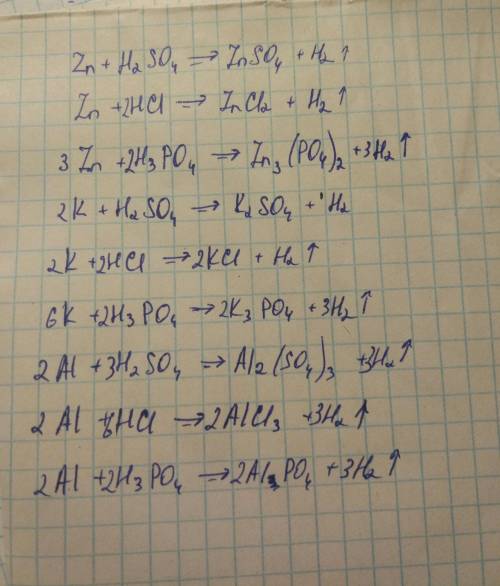 Zn + H₂SO₄ ⇒ ZnSO₄ + H₂↑
Zn + 2HCl ⇒ ZnCl₂ + H₂↑
3 Zn + 2H₃PO₄ ⇒ Zn₃(PO₄)₂ + 3H₂↑
2K + H₂SO₄ ⇒ K₂SO₄ + H₂
2K + 2HCl ⇒ 2KCl + H₂↑
6K + 2H₃PO₄ ⇒ 2K₃PO₄ + 3H₂↑
2Al + 3H₂SO₄ ⇒ Al₂(SO₄)₃ + 3H₂↑
2Al + 6HCl ⇒ 2AlCl₃ + 3H₂↑
2Al + 2H₃PO₄ ⇒ 2AlPO₄ + 3H₂↑